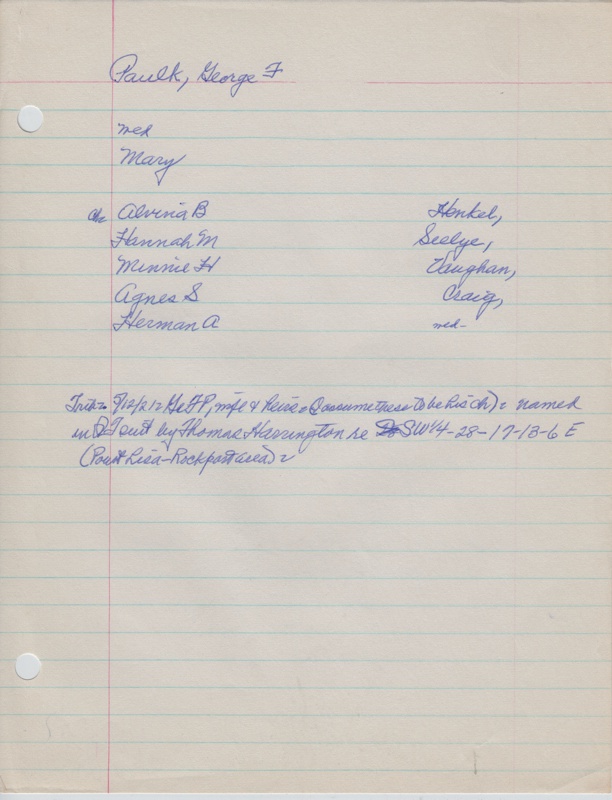 Paulk, George F
med
Mary
ch Alvina B Henkel,
Hannah M Seelye,
Minnie H Vaughan,
Agnes S Craig,
Herman A med-
Trib 5/12/212 Geo F P, wife & heirs (I assume these to be his ch) named
in QT suit by Thomas Harrington re SW1/4-28-17-13-6 E
(Pont Lisa-Rockport area)